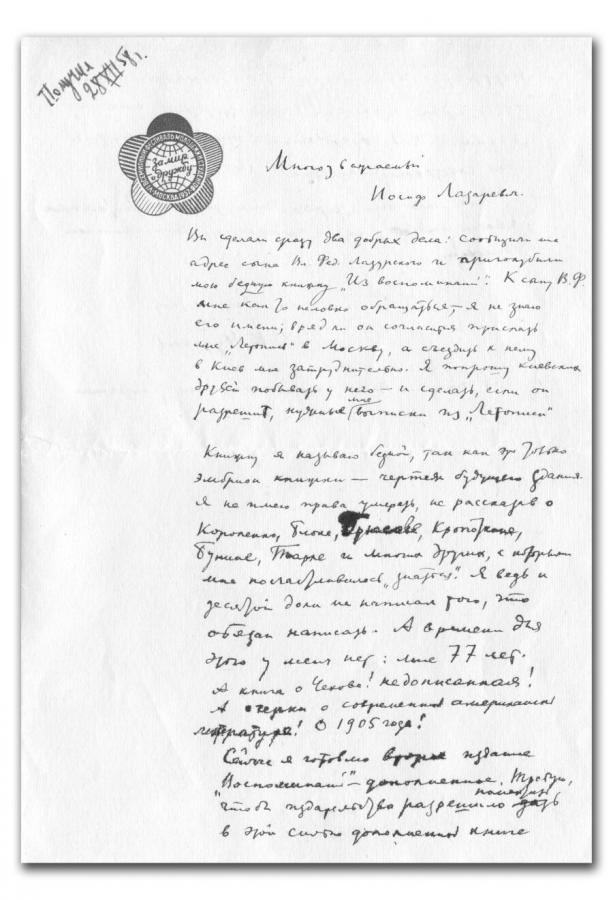 Получил
28 XII 58 г.
за мир
и дружбу
Многоуважаемый
Иосиф Лазаревич.
Вы сделали сразу два добрых дела: сообщили мне
адрес сына Вл. Фед. Лазурского и приголубили
мою бедную книжку „Из воспоминаний“. К сыну В.Ф.
мне как то неловко обращаться, — я не знаю
его имени; вряд ли он согласится прислать
мне „Летопись“ в Москву, а съездить к нему
в Киев мне затруднительно. Я попрошу киевских
друзей побывать у него — и сделать, если он
разрешит, нужные мне выписки из „Летописи“
Книжку я называю бедной, так как это только
эмбрион книжки — чертеж будущего здания.
Я не имею права умереть, не рассказав о
Короленко, Блоке, Брюсове, Кропоткине,
Бунине, Тарле и многих других, с которыми
мне посчастливилось „знаться“. Я ведь и
десятой доли не написал того, что
обязан написать. А времени для
этого у меня нет: мне 77 лет.
А книга о Чехове! недописанная!
А очерки о современной американской
литературе! О 1905 годе!
Сейчас я готовлю второе издание
„Воспоминаний“ — дополненное. Требую,
чтобы издательство разрешило поместить
в этой сильно дополненной книге